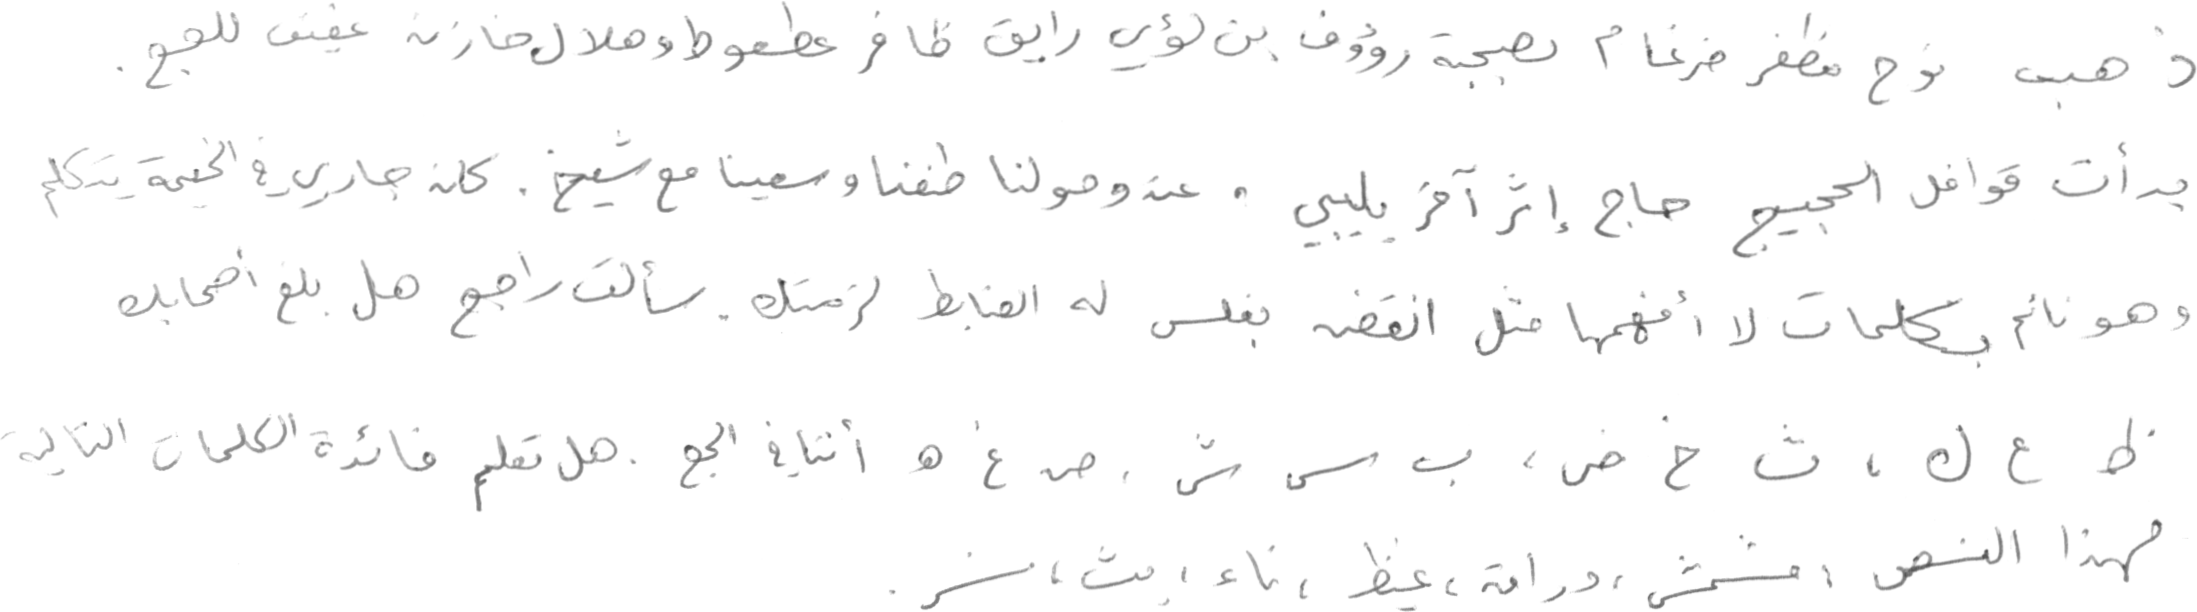 ذهب نوح مظفر ضرغام بصحبة رؤوف بن لؤي رايق ظافر عطعوط وهلال خازن عفيف للحج .
بدأت قوافل الحجيج حاج إثر آخر يلبي . عند وصولنا طفنا وسعينا مع شيخ . كان جاري في الخيمة يتكلم
وهو نائم بكلمات لا أفهمها مثل انقضه بفلس له الضابط لزمتك . سألت راجح هل بلغ أصحابك
ظ ع ك ، ث خ ض ، ب س ش ، ص غ ه أننا في الحج . هل تعلم فائدة الكلمات التالية
لهذا النص ، مشمش ، دراق ، غيظ ، ناء ، بث ، سنر .